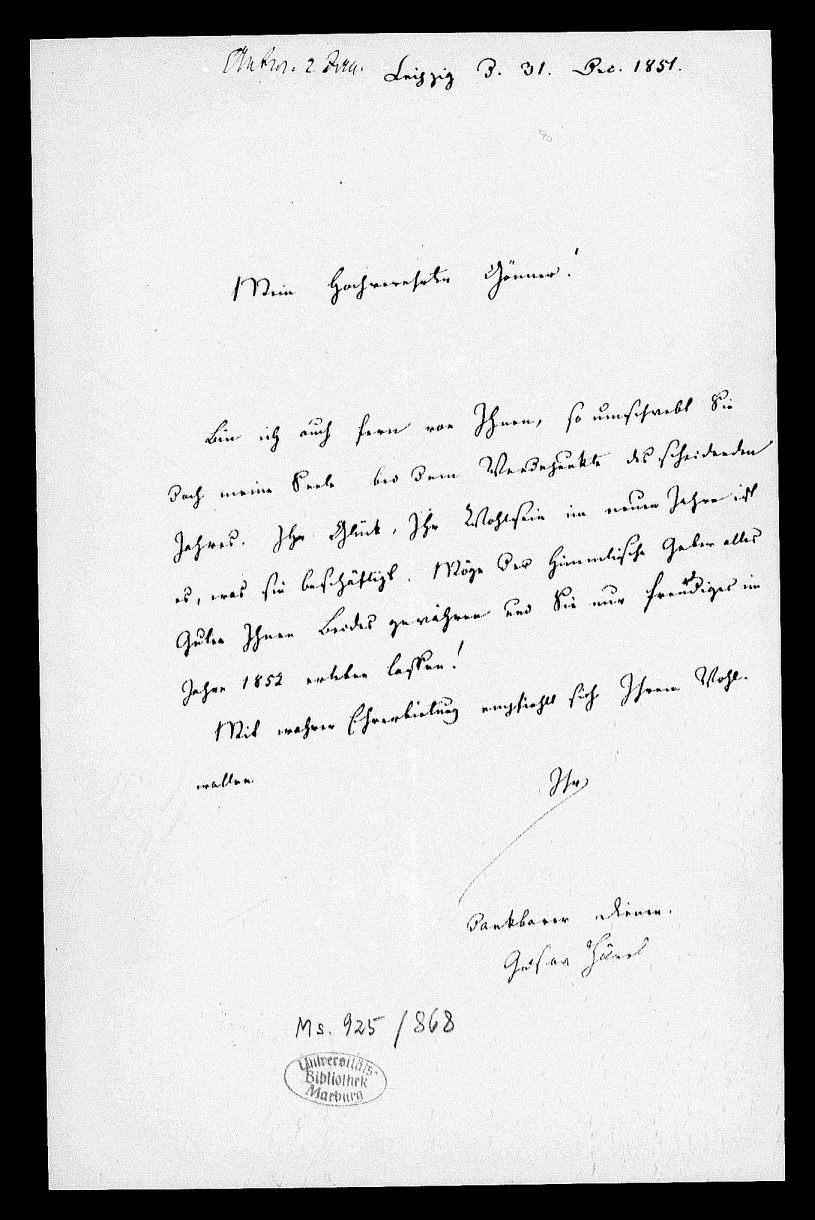 Antw. 2 Jan.
Leipzig d. 31. Dec. 1851.
Mein Hochverehrter Gönner!
Bin ich auch fern von Ihnen, so umschwebt Sie
doch meine Seele bei dem Wendepunkte des scheidenden
Jahres. Ihr Glück, Ihr Wohlsein im neuen Jahre ist
es, was sie beschäftigt. Möge der himmlische Geber alles
Guten Ihnen Beides gewähren und Sie nur freudiges im
Jahre 1852 erleben lassen!
Mit wahrer Ehrerbietung empfiehlt sich Ihrem Wohl-
wollen
Ihr
dankbarer Diener.
Gustav Hänel
Ms. 925/868
Universitäts-
Bibliothek
Marburg